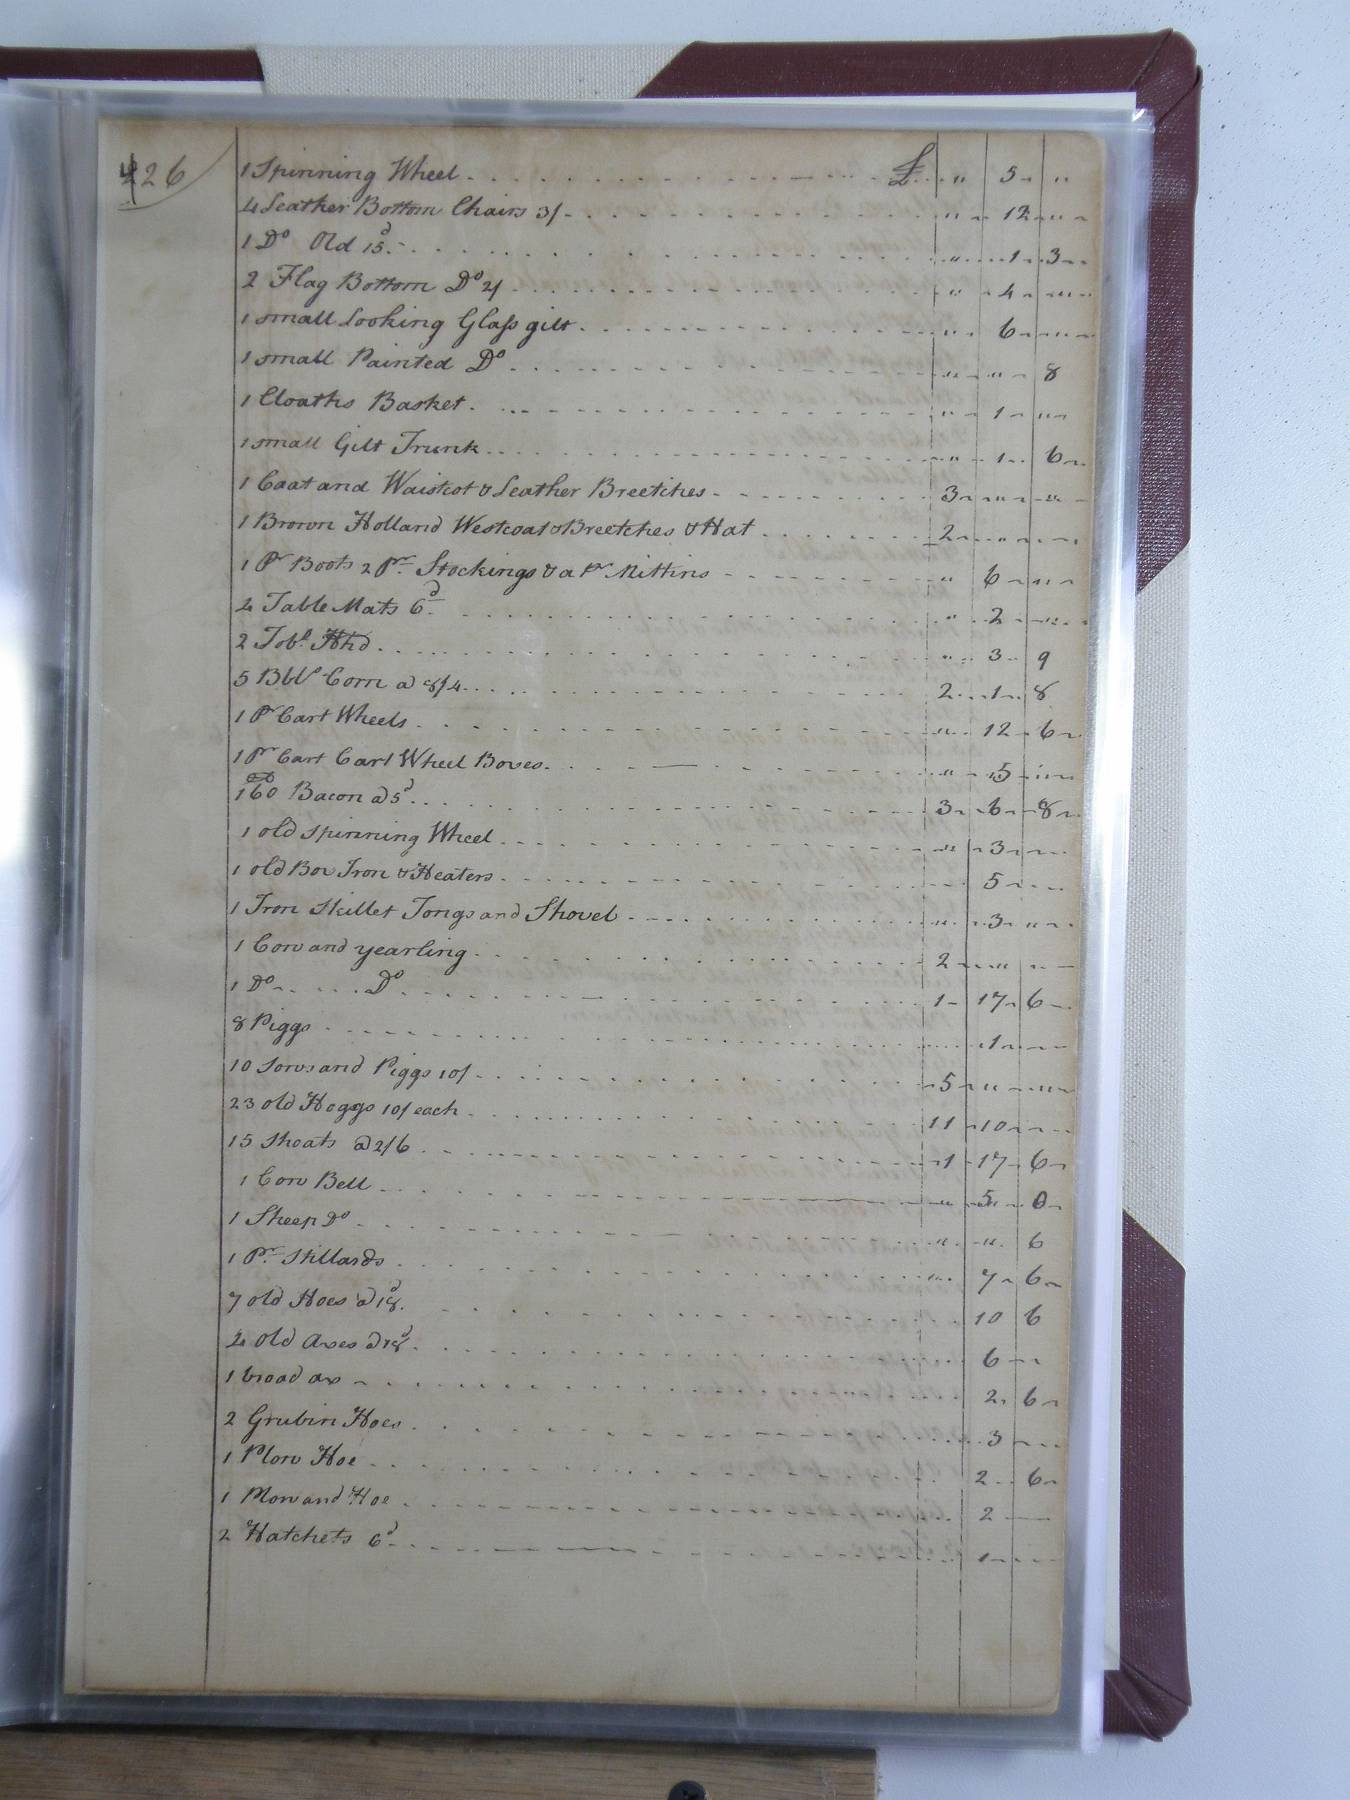 426
1 Spinning Wheel £ " 5 "
4 Leather Bottom Chairs 3/ " 12 "
1 Do Old 15d " 1 3
2 Flag Bottom Do 2/ " 4 "
1 small Looking Glass gilt " 6 "
1 small Painted Do " " 8
1 Cloaths Basket " 1 "
1 small Gilt Trunk " 1 6
1 Coat and Waistcot & Leather Breetches 3 " "
1 Brown Holland Westcoat & Breetches & Hat 2 " "
1 Pr Boots 2 Pr. Stockings & a Pr Mittins " 6 "
4 Table Mats 6d " 2 "
2 Tobo. Hhd " 3 9
5 Bbls Corn a 8/4 2 1 8
1 Pr Cart Wheels " 12 6
1 Pr Cart Cart Wheel Boxes " 5 "
160 Bacon a 5d 3 6 8
1 old spinning Wheel " 3
1 old Box Iron & Heaters 5
1 Iron Skillet Tongs and Shovel " 3 "
1 Cow and yearling 2 " "
1 Do Do 1 17 6
8 Piggs 1
10 Sows and Piggs 10/ 5 " "
23 old Hoggs 10/ each 11 10
15 Shoats a 2/6 1 17 6
1 Cow Bell " 5 0
1 Sheep Do " " 6
1 Pr. Stillards " 7 6
7 old Hoes a 18d 10 6
4 old Axes a 18d 6
1 broad ax 2 6
2 Grubin Hoes 3
1 Plow Hoe 2 6
1 Plow and Hoe 2
2 Hatchets 6d 1